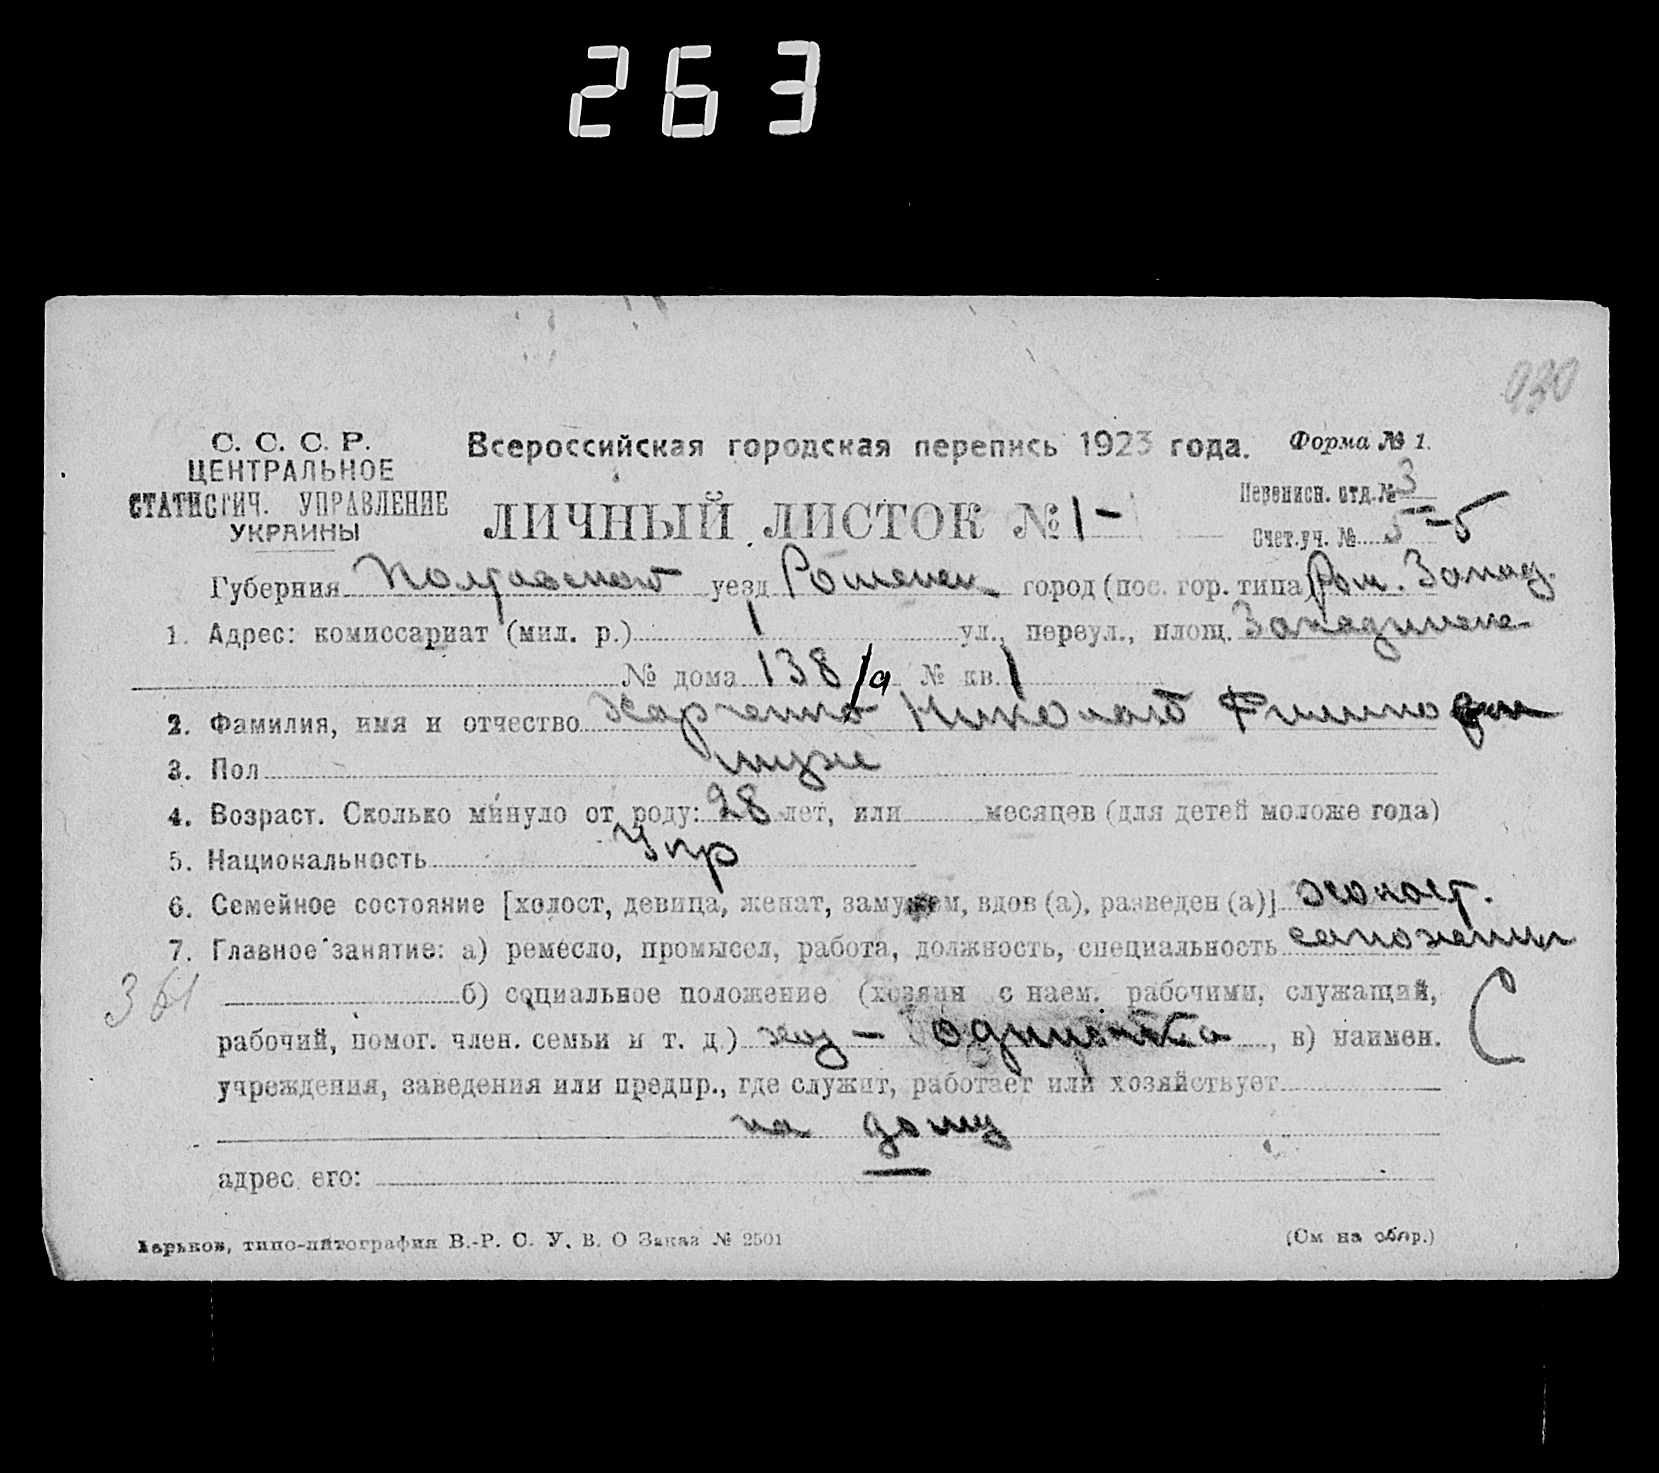 263
030
С. С. С. Р.
ЦЕНТРАЛЬНОЕ
СТАТИСТИЧ. УПРАВЛЕНИЕ
УКРАИНЫ
Всероссийская городская перепись 1923 года.
Форма № 1.
ЛИЧНЫЙ ЛИСТОК № 1 -
Переписн. отд. № 3
Счет. уч. № 5-5
Губерния Полтавской уезд Роменск город (пос. гор. типа) Ром. Запад.
1. Адрес: комиссариат (мил. р.) 1 ул., переул., площ.
№ дома 138/а № кв. 1
2. Фамилия, имя и отчество Харченко Николай
3. Пол муж
4. Возраст. Сколько минуло от роду: 28 лет, или месяцев (для детей моложе года)
5. Национальность Укр
6. Семейное состояние [холост, девица, женат, замужем, вдов (а), разведен (а)] холост.
7. Главное занятие: а) ремесло, промысел, работа, должность, специальность сапожник
361 б) социальное положение (хозяин с наем. рабочими, служащий,
рабочий, помог. член. семьи и т. д.) хоз – одиночка, в) наимен. С
учреждения, заведения или предпр., где служит, работает или хозяйствует
на дому
адрес его:
Харьков, типо-литография В.-Р. С. У. В. О Заказ № 2501
(См на обор.)